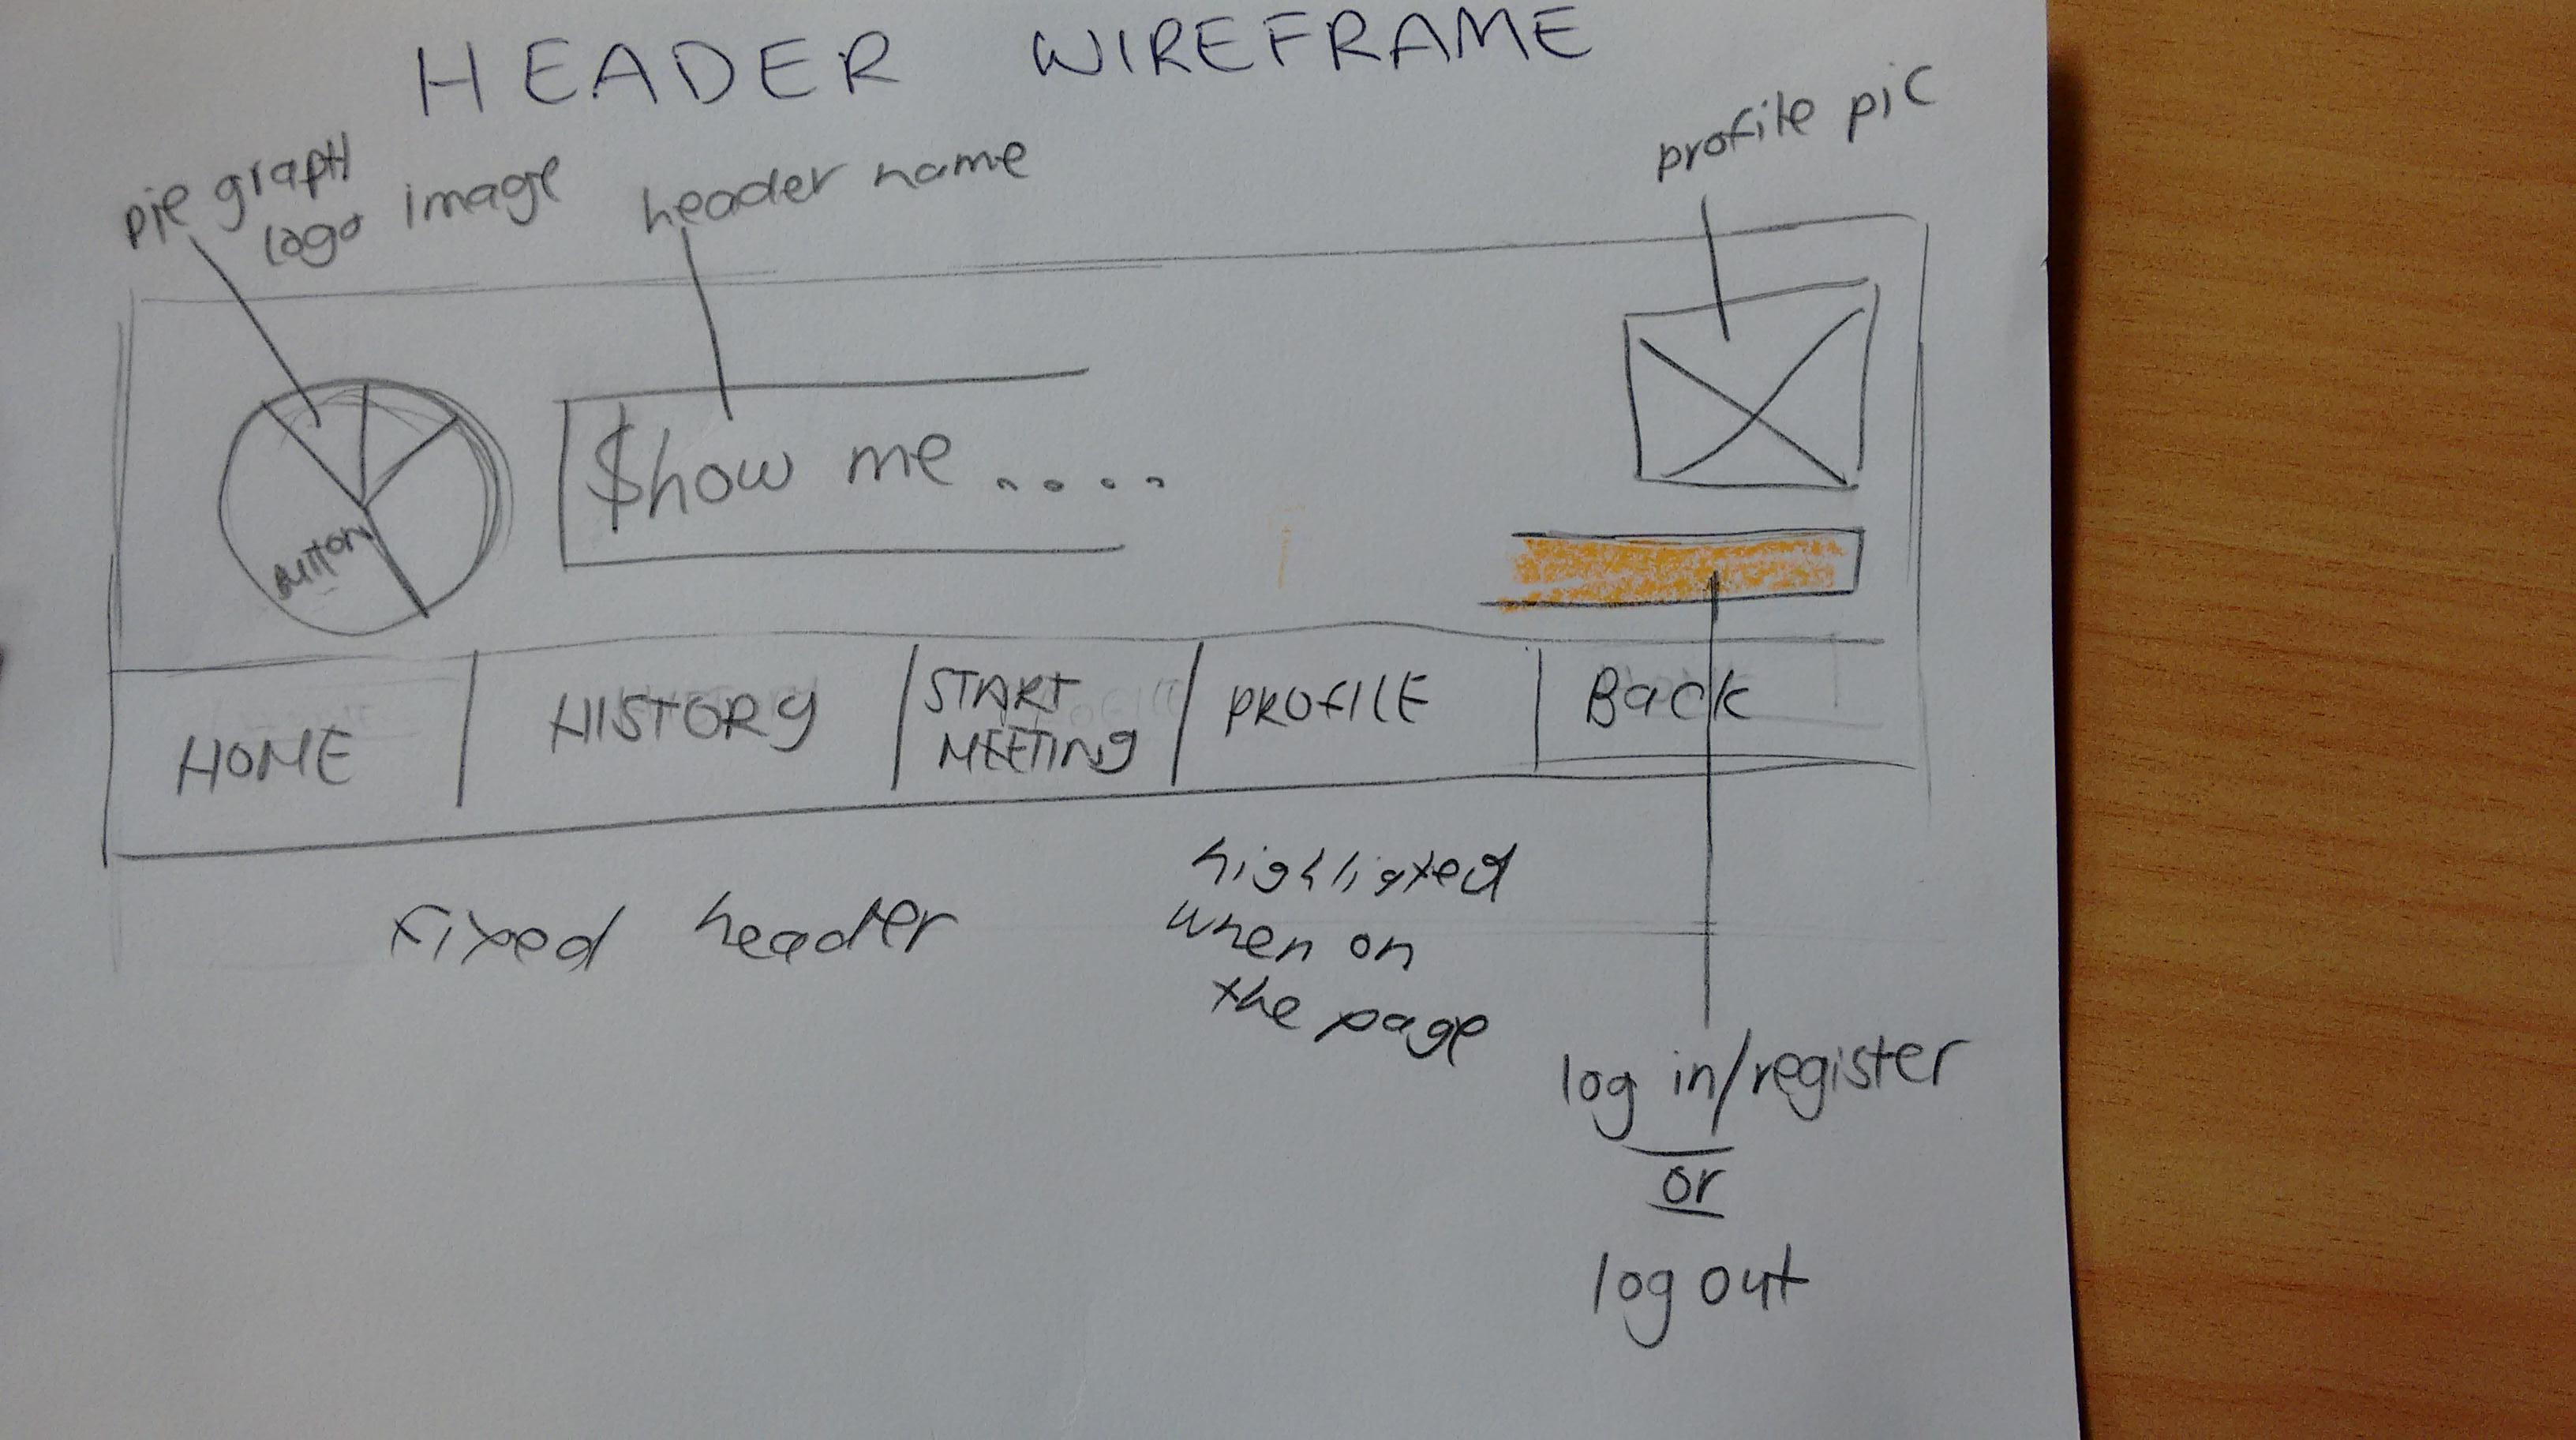 HEADER WIREFRAME
pie graph
logo image
header name
profile pic
$how me ....
BUTTON
HOME
HISTORY
START
MEETING
PROFILE
Back
fixed header
highligted
when on
the page
log in/register
or
log out